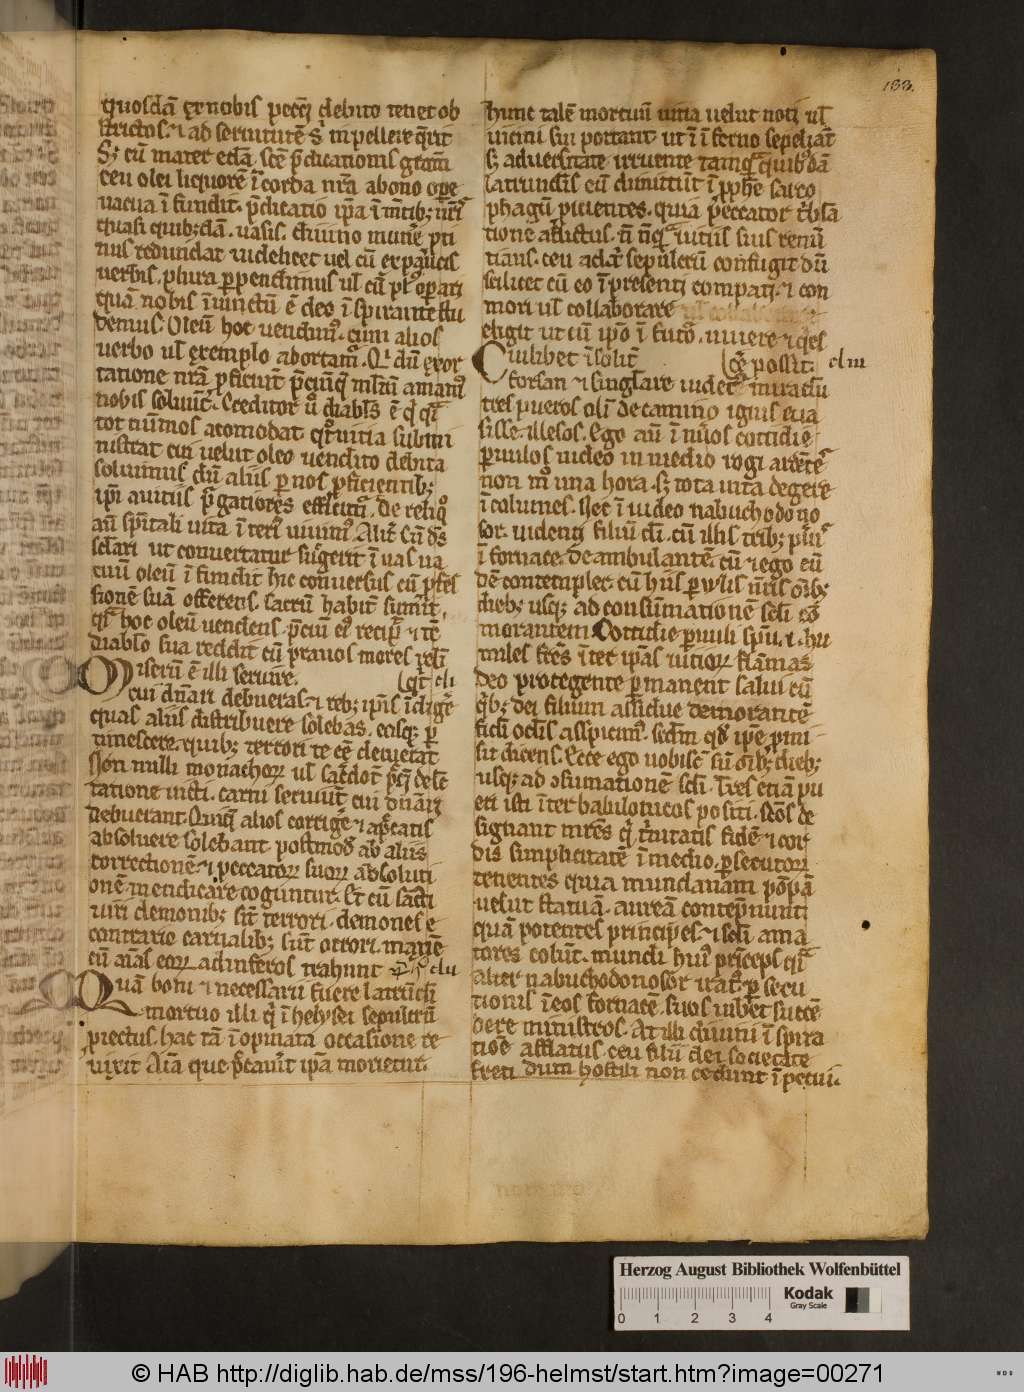 133.
quosdā ex nobis pctī debito tenet ob
strictos ⁊ ad seruitutē s̄ inpellere q̄rit
S; cū mater eccla scē p̄dicationis gram̄
ceu olei liquorē ī corda nr̄a abono ope
uacua ī fundit. p̄dicatio ipa ī mtib; nr̄i
quasi quib;dā. uasis. diuino munē pti
nus redundat uidelicet uel cū ex paucis
uerbis. plura ppendimus ul cū pl' opari
quā nobis ī iunctū ē deo ī spirante stu
demus. Oleū hoc uendim'. cum alios
uerbo ul exemplo abortam'. Q dū exor
tatione nr̄a pficiūt
nobis soluūt. Creditor ū diabls ē q̄ q̄i
tot nūmos acomodat. qt uitia submi
nistrat cui uelut oleo uendito debita
soluimus dū aliis p nos pficientib;
ipi auitiis p̄gatiores efficim̄. de reliq
aū spītali uita ī terī uiuim'. Alit̄ Cū ds
sclari ut conuertatur suḡerit ī uas ua
cuū oleū ī fundit hic conuersus cū pfes
sionē suā offerens. sacrū habitū sumit,
q̄i hoc oleū uendens. p̄ciū ei' recip̄ ⁊ tc̄
diablo sua reddit cū prauos mores
Miserū ē illi seruire. qt cli
cui dnari debueras. ⁊ reb; ipis īdige
quas aliis distribuere solebas. easq; p
timescere. quib; terrori te ēe decuerat
nulli monachor ul sacdot
tatione uicti. carni seruiūt cui dnari
debuerant. Qui alios corrige ⁊ apctatis
absoluere solebant. postmodū ab aliis
correctionē ⁊ peccator suor absoluti
onē mendicare coguntur. Et cū sancti
uiri demonib; sīt terrori. demones e
contrario carnalib; sūt terrori. manē
cū aīas eor ad inferos trahunt clii
Quā boni ⁊ necessarii fuere latrūcli
mortuo illi q̄ ī helysei sepulcrū
proiectus. hac tā ī opinata occasione re
uixit Aīa que p̄cauit ipa morietur.
hunc talē mortuū uitia uelut noti ul
uicini sui portant ut ī ī ferno sepeliāt
s; aduersitate irruente tamq quibdā
latrunclis eū dimittūt ī pphe sarco
phagū picientes. quia peccator tbla
tione afflictus. n̄ nūq uitiis suis renū
tians. ceu adx sepulcrū confugit dū
scilicet cū eo ī presenti compati. ⁊ con
mori ul collaborare
eligit ut cū ipō ī futō. uiuere ⁊
Cuilibet ī solit̄ ē possit. cliii
forsan ⁊ singlare uideī miraclū
tres pueros olī de camino ignis eua
sisse. illesos. Ego aū ī nuos cottidie
puulos uideo in medio rogi ardēte
non m̄ una hora. s; tota uita degere
ī columes. Nec ī uideo nabuchodono
sor. uidenti filiū di. cū illis trib; pu
ī fornace. deambulantē. cū ⁊ ego eū
dē contempler cū hiis puulis nris oīb;
dieb; usq; ad consūmationē scli cō
morantem Cottidie puuli spū. i. hu
miles frēs ī ter ipas uitior flāmas
deo protegente pmanent salui cū
q̄b; dei filium assidue demorantē
fidi oclis aspicim'. scdm qd ipse pmi
sit dicens. Ecce ego uobisc̄ sū oīb; dieb;
usq; ad ɔsumationē scli. Tres etiā pu
eri isti ī ter babilonicos positi. Scōs de
signant mrēs q̄ trinitatis fidē ⁊ cor
dis simplicitatē ī medio psecutor
tenentes quia mundanam pōpā
uelut statuā. aureā contepnunt
quā potentes principes ⁊ scli ama
tores colūt. mundi hui' princeps q̄i
alter nabuchodonosor irat' psecu
tionis ī eos fornacē. suos iubet succē
dere ministros. At illi diuini ī spira
tiōe afflatus. ceu filii dei societate
freti dum hostili non cedunt ī petui.
Herzog August Bibliothek Wolfenbüttel
0 1 2 3 4
Kodak
Gray Scale
© HAB http://diglib.hab.de/mss/196-helmst/start.htm?image=00271